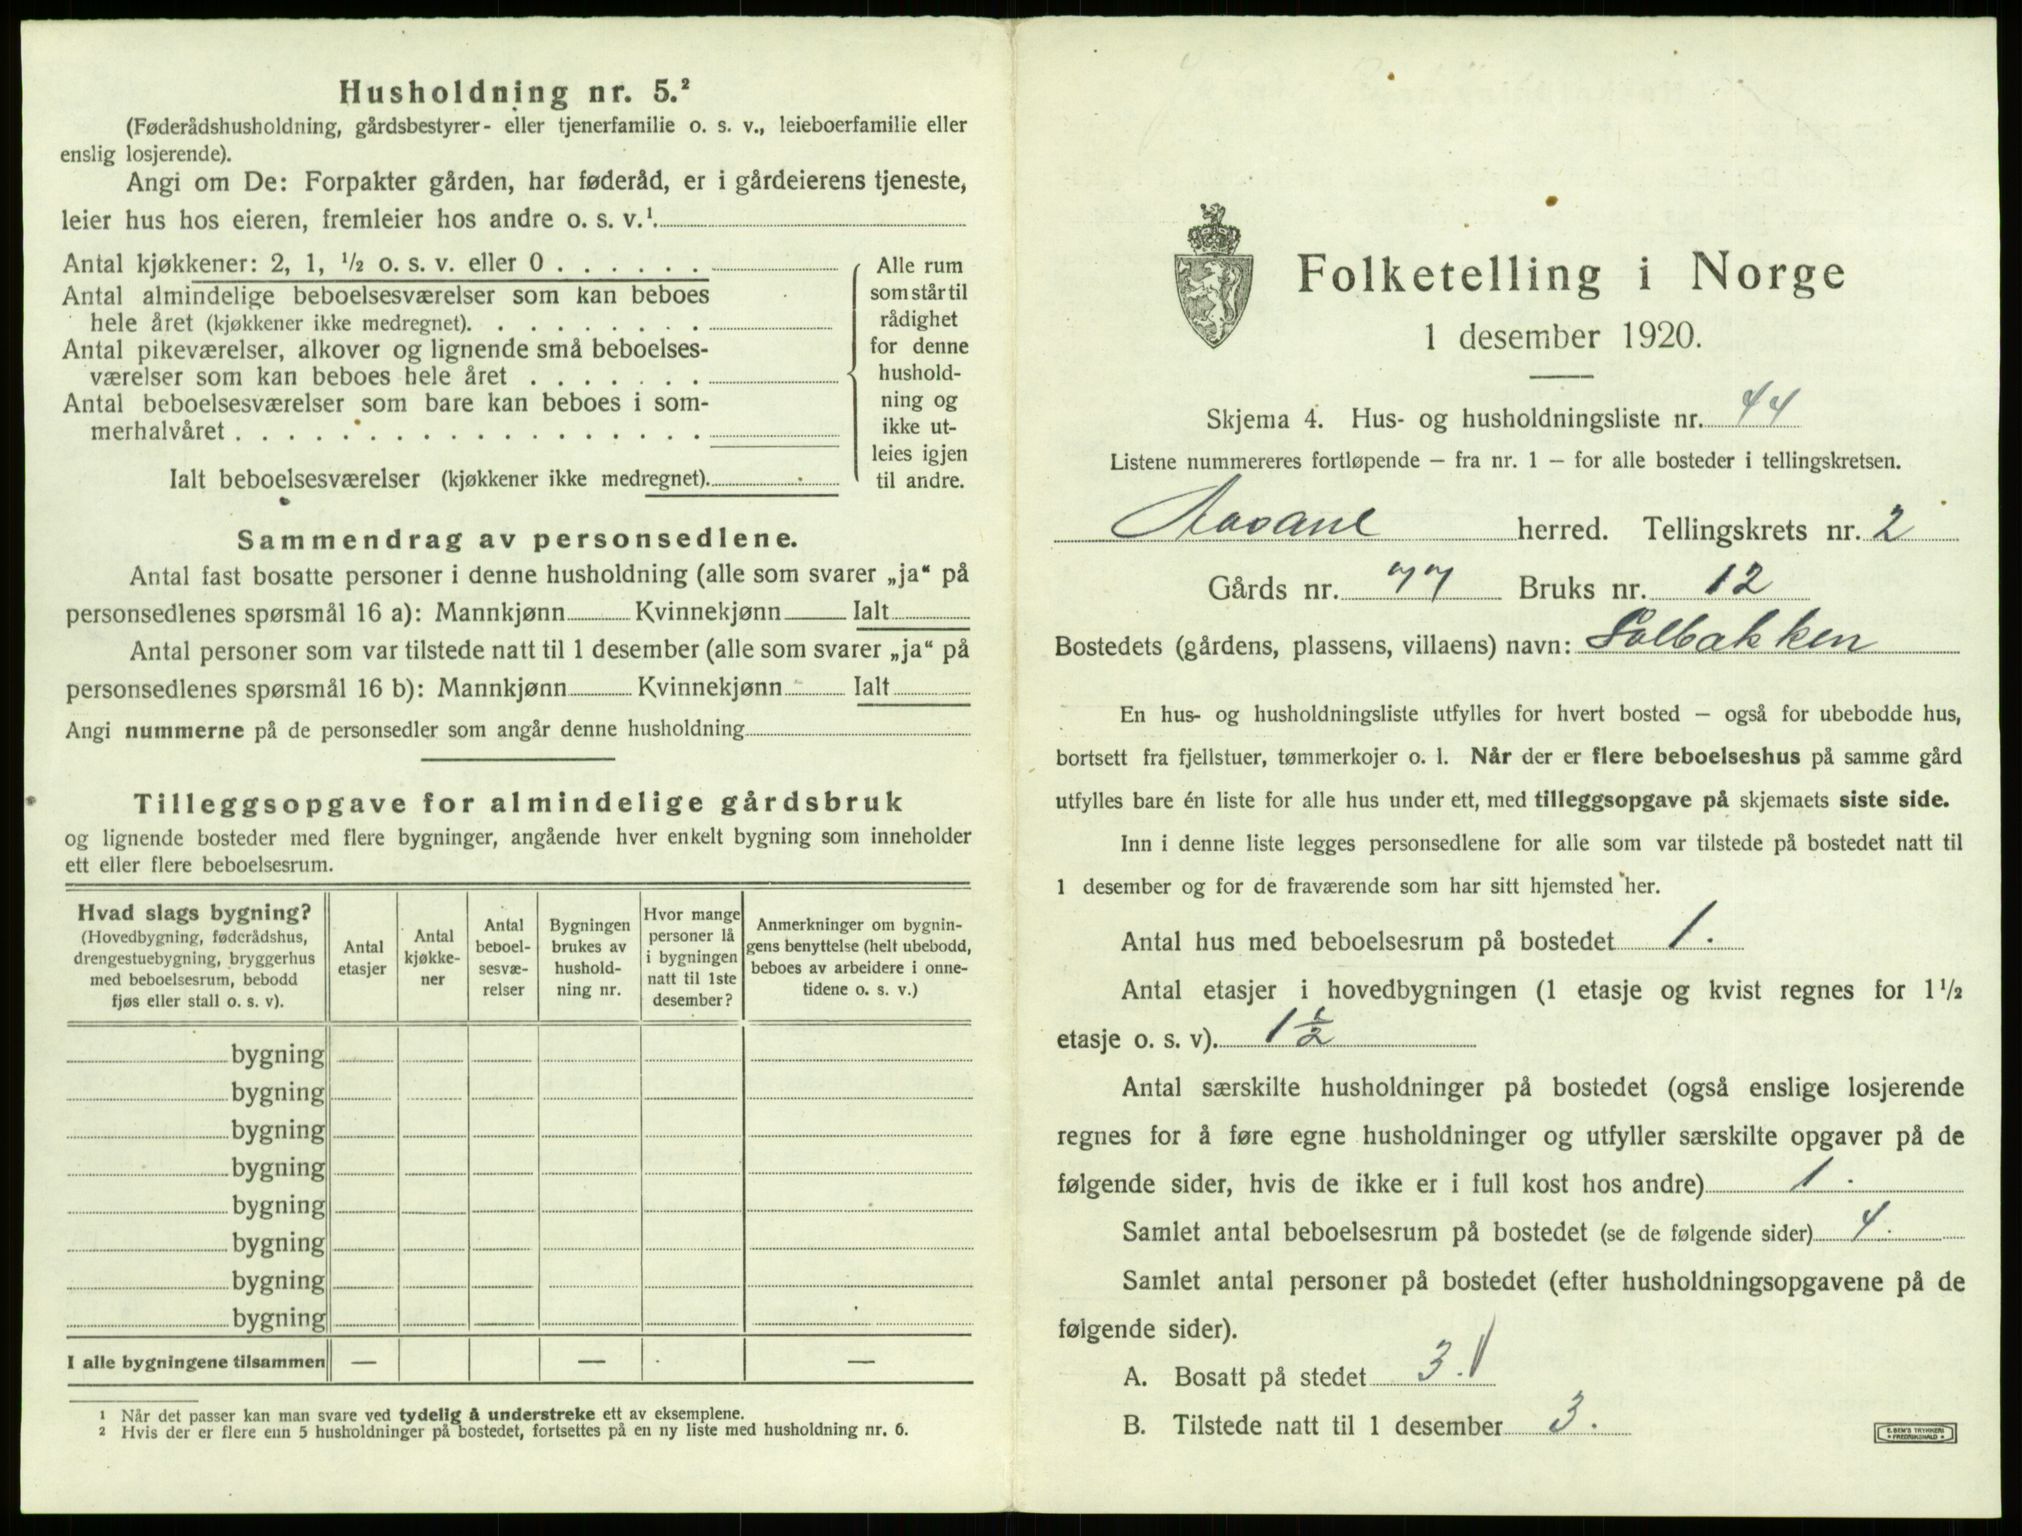 Husholdning nr. 5.²
(Føderådshusholdning, gårdsbestyrer- eller tjenerfamilie o. s. v., leieboerfamilie eller
enslig losjerende).
Angi om De: Forpakter gården, har føderåd, er i gårdeierens tjeneste,
leier hus hos eieren, fremleier hos andre o. s. v.¹
Antal kjøkkener: 2, 1, ½ o. s. v. eller 0 . . . . . .
Antal almindelige beboelsesværelser som kan beboes
hele året (kjøkkener ikke medregnet). . . . . . . . .
Antal pikeværelser, alkover og lignende små beboelses-
værelser som kan beboes hele året . . . . . . .
Antal beboelsesværelser som bare kan beboes i som-
merhalvåret . . . . . . . . . . . . . . . . . .
Ialt beboelsesværelser (kjøkkener ikke medregnet).
Alle rum
som står til
rådighet
for denne
hushold-
ning og
ikke ut-
leies igjen
til andre.
Sammendrag av personsedlene.
Antal fast bosatte personer i denne husholdning (alle som svarer „ja“ på
personsedlenes spørsmål 16 a): Mannkjønn Kvinnekjønn Ialt
Antal personer som var tilstede natt til 1 desember (alle som svarer „ja“ på
personsedlenes spørsmål 16 b): Mannkjønn Kvinnekjønn Ialt
Angi nummerne på de personsedler som angår denne husholdning
Tilleggsopgave for almindelige gårdsbruk
og lignende bosteder med flere bygninger, angående hver enkelt bygning som inneholder
ett eller flere beboelsesrum.
Hvad slags bygning?
(Hovedbygning, føderådshus,
drengestuebygning, bryggerhus
med beboelsesrum, bebodd
fjøs eller stall o. s. v).
Antal
etasjer
Antal
kjøkke-
ner
Antal
beboel-
sesvæ-
relser
Bygningen
brukes av
hushold-
ning nr.
Hvor mange
personer lå
i bygningen
natt til 1ste
desember?
Anmerkninger om bygnin-
gens benyttelse (helt ubebodd,
beboes av arbeidere i onne-
tidene o. s. v.)
bygning
bygning
bygning
bygning
bygning
bygning
bygning
bygning
I alle bygningene tilsammen — — —
¹ Når det passer kan man svare ved tydelig å understreke ett av eksemplene.
² Hvis der er flere enn 5 husholdninger på bostedet, fortsettes på en ny liste med husholdning nr. 6.
Folketelling i Norge
1 desember 1920.
Skjema 4. Hus- og husholdningsliste nr. 44
Listene nummereres fortløpende – fra nr. 1 – for alle bosteder i tellingskretsen.
Aasane herred. Tellingskrets nr. 2
Gårds nr. 77 Bruks nr. 12
Bostedets (gårdens, plassens, villaens) navn: Solbakken
En hus- og husholdningsliste utfylles for hvert bosted – også for ubebodde hus,
bortsett fra fjellstuer, tømmerkojer o. l. Når der er flere beboelseshus på samme gård
utfylles bare én liste for alle hus under ett, med tilleggsopgave på skjemaets siste side.
Inn i denne liste legges personsedlene for alle som var tilstede på bostedet natt til
1 desember og for de fraværende som har sitt hjemsted her.
Antal hus med beboelsesrum på bostedet 1.
Antal etasjer i hovedbygningen (1 etasje og kvist regnes for 1½
etasje o. s. v). 1½
Antal særskilte husholdninger på bostedet (også enslige losjerende
regnes for å føre egne husholdninger og utfyller særskilte opgaver på de
følgende sider, hvis de ikke er i full kost hos andre) 1.
Samlet antal beboelsesrum på bostedet (se de følgende sider) 4.
Samlet antal personer på bostedet (efter husholdningsopgavene på de
følgende sider).
A. Bosatt på stedet 3.
B. Tilstede natt til 1 desember 3.
E. SEM'S TRYKKERI
FREDRIKSHALD